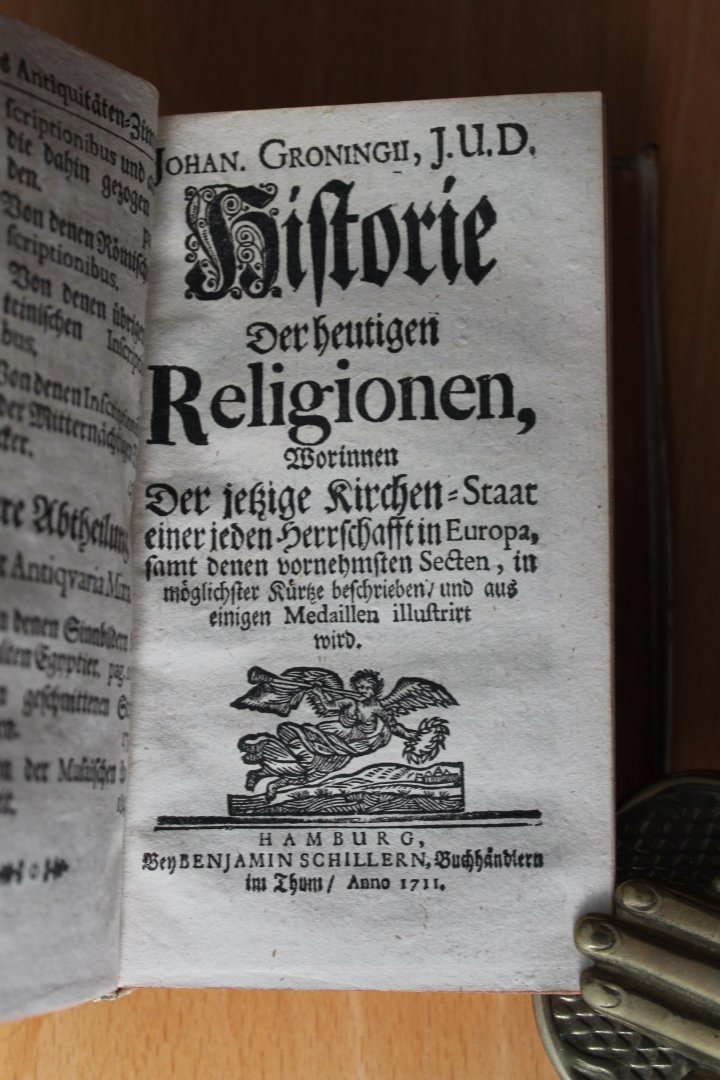 Antiquitäten-Zim
scriptionibus und
die dahin gezogen
den.
Von denen Römisch
scriptionibus.
Von denen übrigen
teinischen Inscript
bus.
Von denen Inscription
der Mitternächtige
cker.
re Abtheilung
Antiqvaria
denen Sinnbildern
alten Egyptier. pag.
geschnittenen
rn.
der Musischen
JOHAN. GRONINGII, J.U.D.
Historie
Der heutigen
Religionen,
Worinnen
Der jetzige Kirchen-Staat
einer jeden Herrschafft in Europa,
samt denen vornehmsten Secten, in
möglichster Kürtze beschrieben/ und aus
einigen Medaillen illustrirt
wird.
HAMBURG,
Bey BENJAMIN SCHILLERN, Buchhändlern
im Thum/ Anno 1711.